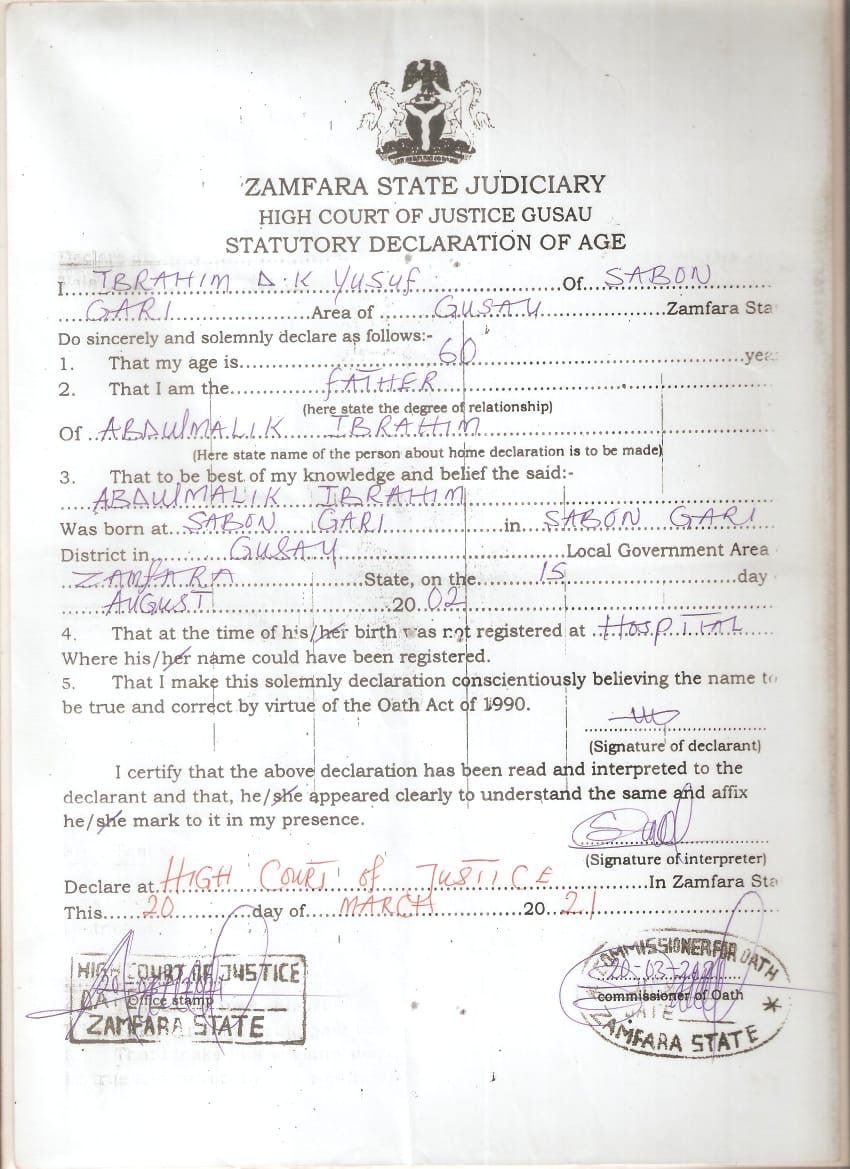 ZAMFARA STATE JUDICIARY
HIGH COURT OF JUSTICE GUSAU
STATUTORY DECLARATION OF AGE
I....IBRAHIM D.K Yusuf....Of....SABON
....GARI....Area of....GUSAU....Zamfara Sta
Do sincerely and solemnly declare as follows:-
1. That my age is....60....yea
2. That I am the....FATHER....
(here state the degree of relationship)
Of..ABDULMALIK IBRAHIM
(Here state name of the person about home declaration is to be made)
3. That to be best of my knowledge and belief the said:-
....ABDULMALIK IBRAHIM....
Was born at..SABON GARI....in..SABON GARI
District in....GUSAU....Local Government Area
..ZAMFARA....State, on the....15....day
....AUGUST....20.02....
4. That at the time of his/her birth was not registered at ..HOSPITAL
Where his/her name could have been registered.
5. That I make this solemnly declaration conscientiously believing the name to
be true and correct by virtue of the Oath Act of 1990.
(Signature of declarant)
I certify that the above declaration has been read and interpreted to the
declarant and that, he/she appeared clearly to understand the same and affix
he/she mark to it in my presence.
(Signature of interpreter)
Declare at.HIGH COURT of JUSTICE....In Zamfara Sta
This....20....day of....MARCH....20..21
HIGH COURT OF JUSTICE
Office stamp
ZAMFARA STATE
COMMISSIONER FOR OATH
20-03-2021
commissioner of Oath
DATE
ZAMFARA STATE